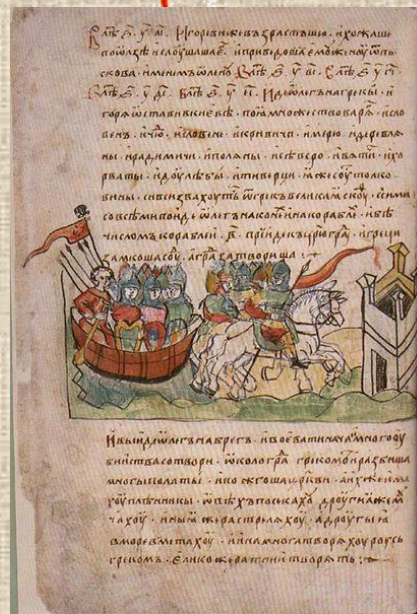 В лѣⷮ ҂ѕ. у҃ і҃а. Игореви же възрастъшю. и хожаше
по ѿлзѣ и слоушаша е҆. и приведоша ему женоу ѿ пль
скова. именемъ ѡленоу. В лѣⷮ ҂ѕ. у҃ в҃і. В лѣⷮ ҂ѕ. у҃ г҃і.
В лѣⷮ ҂ѕ. у҃ д҃і. В лѣⷮ ҂ѕ. у҃ е҃і. Иде ѡлегъ на грекы. и
горѧ ѡставив киевѣ. поѧ множество варѧ. и сло
венъ. и чю. и словене. и кривичи. и мерю. и деревлѧ
ны. и радимичи. и полѧны. и сѣверо. и вѧти. и хо
рваты. и доулѣбы. и тиверци. ꙗже соу толко
вины. си вси звахоуть ѿ грекъ великаꙗ скоу. сими
со всѣми поиде ѡлегъ на конеи на корабле. и бѣ
числомъ кораблеи. в҃. приде къ црⷭюгра. и греци
замкоша соу. а гра затвориша
И выиде ѡлегъ на брегъ. и воевати нача. и много оу
бииства сотвори. ѡколо гра грекомъ. и разбиша
многы полаты. и пожгоша церкви. а иⷯже има
хоу плѣнникы. ѡвѣхъ посѣкахоу. дроугиꙗ же м
чахоу. иныꙗ же растрѣлѧхоу. а дроугыꙗ
в море вметахоу. и ина многа творѧхоу роусь
грекомъ. елико же ратнии творѧть